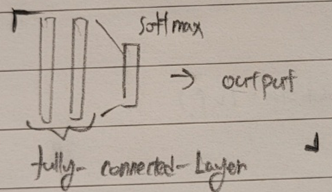 softmax
→ output
fully-connected-Layer